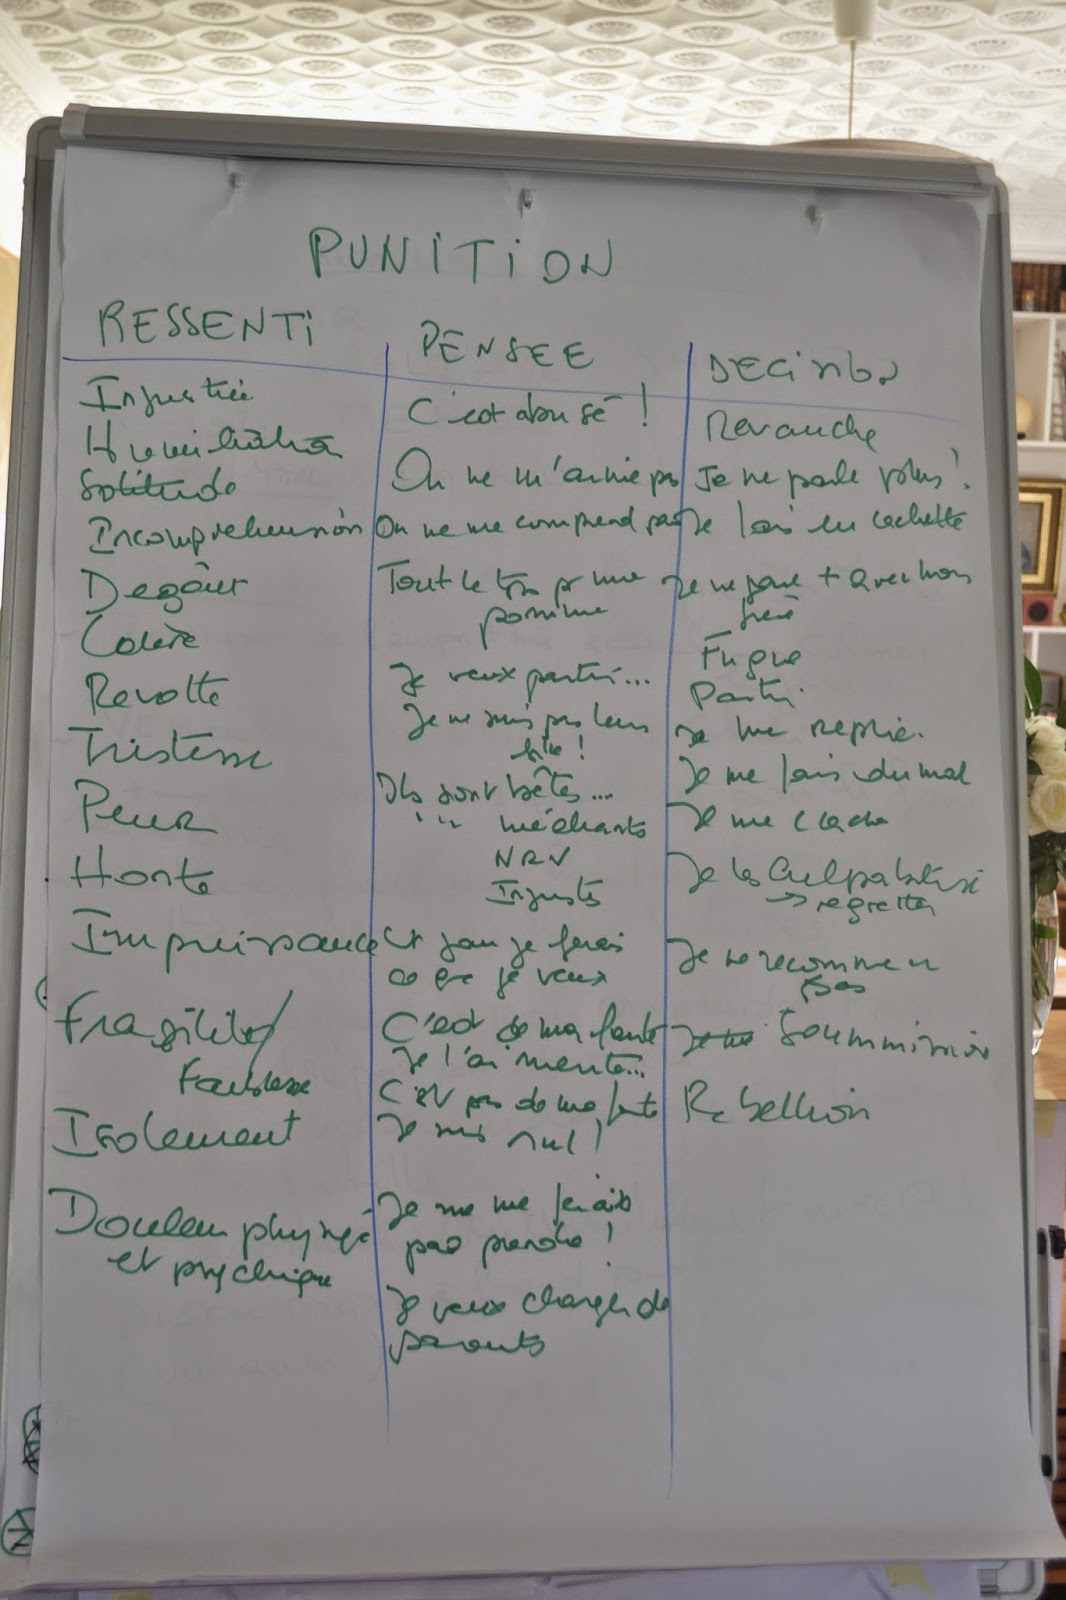 PUNITION
RESSENTI
Injustice
Humiliation
Solitude
Incompréhension
Dégôut
Colère
Révolte
Tristesse
Peur
Honte
Impuissance
Fragilité/
Faiblesse
Isolement
Douleur physique
et psychique
PENSEE
C'est abusé !
On ne m'aime pas
On ne me comprend pas
Tout le tps pr ma
pomme
Je veux partir...
Je ne suis pas leur
fille !
Ils sont bêtes...
" " méchants
NRV
Injustes
Un jour je ferai
ce que je veux
C'est de ma faute
Je l'ai mérité...
C'est pas de ma faute
Je suis nul !
Je me me ferais
pas prendre !
Je veux changer de
parents
DECISION
Revanche
Je ne parle plus !
Je fais en cachette
Je ne joue + avec mon
frère
Fugue
Partir
Je me replie.
Je me fais du mal
Je me cache
Je les culpabilise
→ regretter
Je ne recommence
pas
Soummission
Rebellion